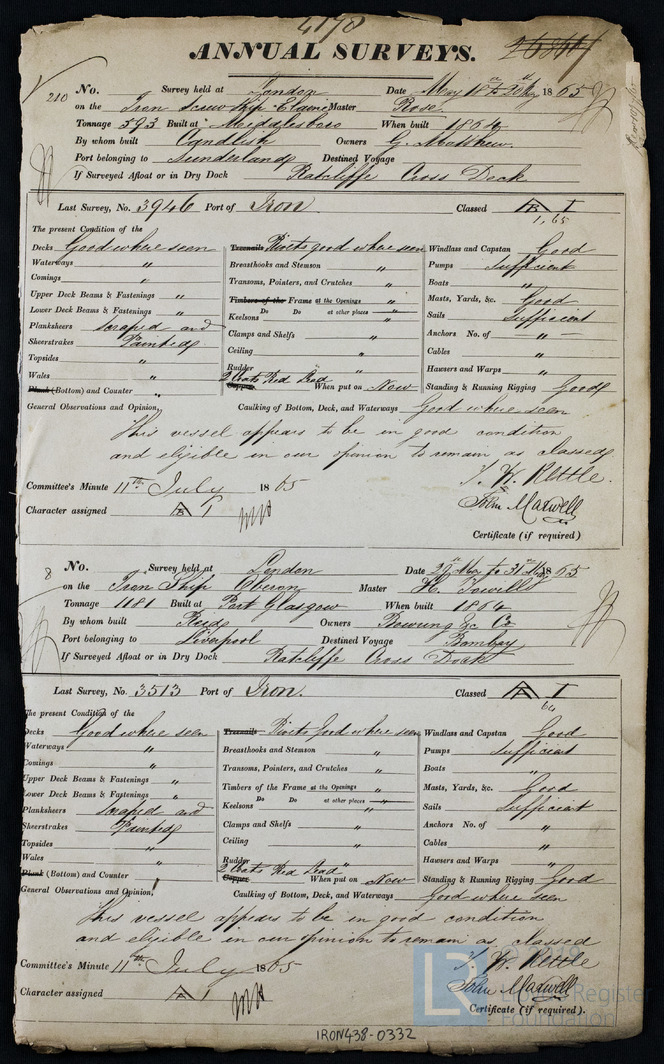 4178
ANNUAL SURVEYS.
210 No. Survey held at London Date May 18th to 20th May 1865
on the Iron Screw Ship Elaine Master Rose
Tonnage 593 Built at Middlesboro When built 1864
By whom built Candlish Owners G. Matthew.
Port belonging to Sunderland Destined Voyage
If Surveyed Afloat or in Dry Dock Ratcliffe Cross Dock
Last Survey, No. 3946 Port of Iron Classed A 1
1,65
The present Condition of the
Decks Good where seen Treenails Rivets good where seen Windlass and Capstan Good
Waterways " Breasthooks and Stemson " Pumps Sufficient
Comings " Transoms, Pointers, and Crutches " Boats "
Upper Deck Beams & Fastenings " Timbers of the Frame at the Openings " Masts, Yards, &c. Good
Lower Deck Beams & Fastenings " Do Do at other places " Sails Sufficient
Keelsons "
Planksheers scraped and Clamps and Shelfs " Anchors No. of "
Sheerstrakes Painted Ceiling " Cables "
Topsides " Rudder " Hawsers and Warps "
Wales " 2 Coats Red Lead
Plank (Bottom) and Counter " Copper When put on Now Standing & Running Rigging Good
General Observations and Opinion, Caulking of Bottom, Deck, and Waterways Good where seen
This vessel appears to be in good condition
and eligible in our opinion to remain as classed
T. W. Kettle.
Committee's Minute 11th July 1865 John Maxwell
Character assigned A 1
Certificate (if required)
8 No. Survey held at London Date 29th May to 31st May 1865
on the Iron Ship Oberon Master
Tonnage 1181 Built at Port Glasgow When built 1864
By whom built Reid Owners Bowring &c Co
Port belonging to Liverpool Destined Voyage Bombay
If Surveyed Afloat or in Dry Dock Ratcliffe Cross Dock
Last Survey, No. 3513 Port of Iron. Classed A 1
64
The present Condition of the
Decks Good where seen Treenails Rivets good where seen Windlass and Capstan Good
Waterways " Breasthooks and Stemson " Pumps Sufficient
Comings " Transoms, Pointers, and Crutches " Boats "
Upper Deck Beams & Fastenings " Timbers of the Frame at the Openings " Masts, Yards, &c. Good
Lower Deck Beams & Fastenings " Do Do at other places " Sails Sufficient
Keelsons "
Planksheers scraped and Clamps and Shelfs " Anchors No. of "
Sheerstrakes Painted Ceiling " Cables "
Topsides " Rudder " Hawsers and Warps "
Wales " 2 Coats Red Lead
Plank (Bottom) and Counter Copper When put on Now Standing & Running Rigging Good
General Observations and Opinion, Caulking of Bottom, Deck, and Waterways Good where seen
This vessel appears to be in good condition
and eligible in our opinion to remain as classed
T. W. Kettle
Committee's Minute 11th July 1865 John Maxwell
Character assigned A 1
Certificate (if required).
LR
Lloyd's Register
Foundation
IRON438-0332